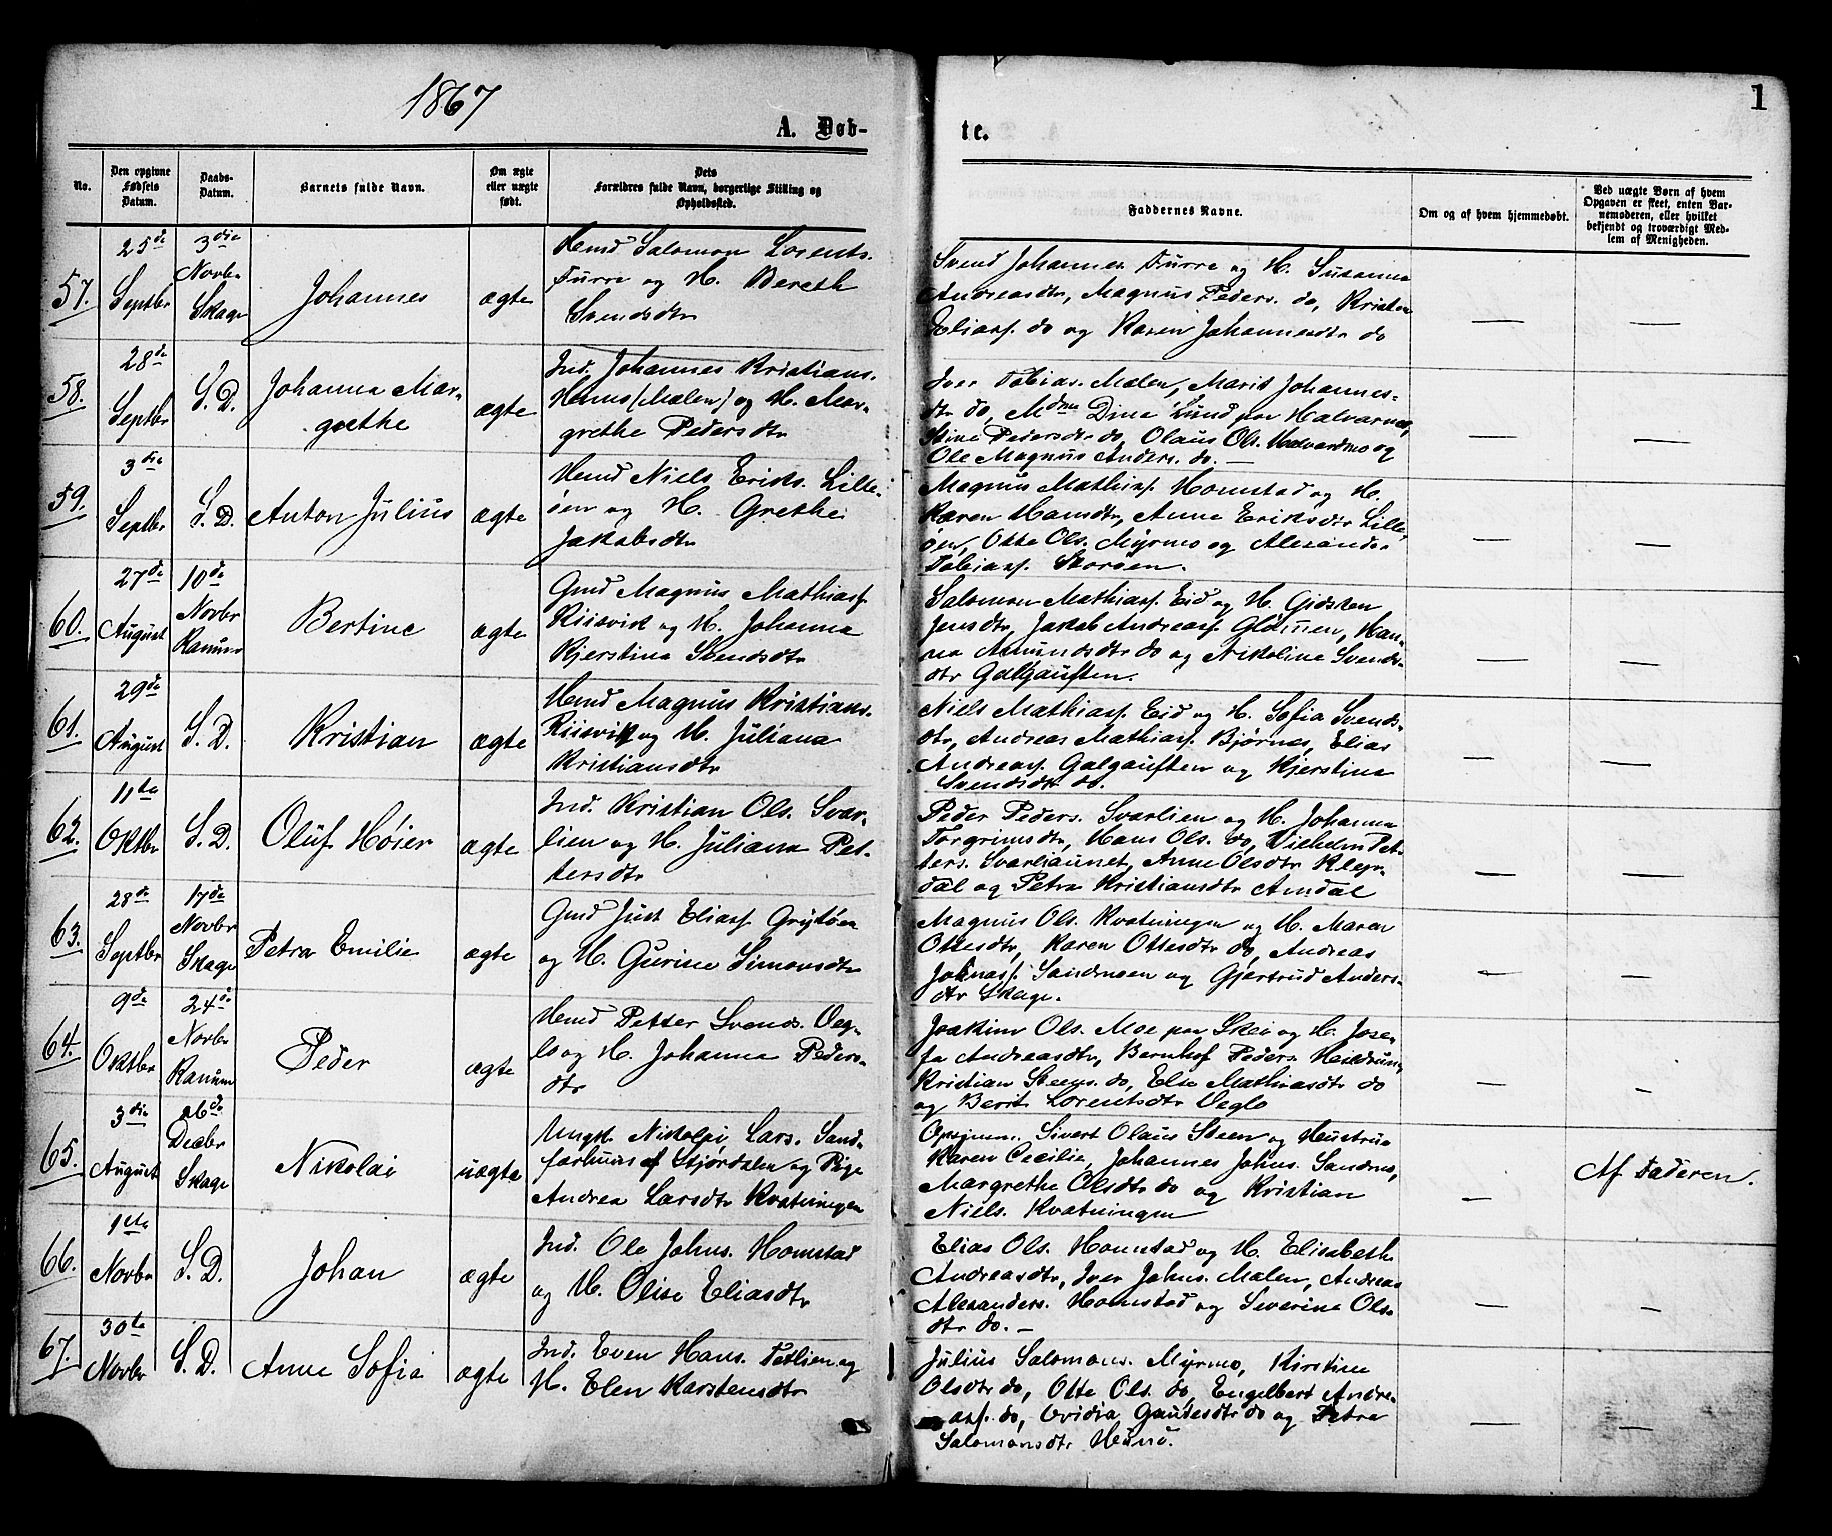 1
1867
A. Døb-
te.
No.
Den opgivne Fødsels Datum.
Daabs-Datum.
Barnets fulde Navn.
Om ægte eller uægte født.
Dets Forældres fulde Navn, borgerlige Stilling og Opholdssted.
Faddernes Navne.
Om og af hvem hjemmedøbt.
Ved uægte Børn af hvem Opgaven er skeet, enten Barnemoderen, eller hvilket bekjendt og troværdigt Medlem af Menigheden.
57.
25de Septbr
3die Novbr Skage
Johannes
ægte
Hmd Salomon Lorents.
Furre og H. Bereth
Svendsdtr
Svend Johannes. Furre og H. Susanna
Andreasdtr, Magnus Peders. do, Kristen
Eliass. do og Karen Johannesdtr do
—
—
58.
28de Septbr
S. D.
Johanna Mar-
grethe
ægte
Ind. Johannes Kristians.
Hunns (Mælen) og H. Mar-
grethe Pedersdtr
Iver Tobias. Mælen, Marit Johannes-
dtr do, Mdm Dina Lund paa Halvarmo,
Stine Pedersdtr do, Olaus Ols. Halvardmo og
Ole Magnus Anders. do. —
—
—
59.
3die Septbr
S. D.
Anton Julius
ægte
Hmd Niels Eriks. Lille-
øen og H. Grethe
Jakobsdtr
Magnus Mathiass. Homstad og H.
Karen Hansdtr, Anne Eriksdtr Lille-
øen, Otte Ols. Myrmo og Alexander
Tobiass. Skorøen.
—
—
60.
27de August
10de Novbr Ranum
Bertine
ægte
Gmd Magnus Mathiass.
Riisvik og H. Johanna
Kjerstina Svendsdtr
Salomon Mathiass. Eid og H. Gidsken
Jensdtr, Jakob Andreass. Gløunen, Han-
na Amundsdtr do og Nikoline Svends-
dtr Galgauften.
—
—
61.
29de August
S. D.
Kristian
ægte
Hmd Magnus Kristians.
Riisvik og H. Juliana
Kristiansdtr
Niels Mathiass. Eid og H. Sofia Svends-
dtr, Andreas Mathiass. Bjørnes, Elias
Andreass. Galgauften og Kjerstina
Svendsdtr do.
—
—
62.
11te Oktbr
S. D.
Oluf Høier
ægte
Ind. Kristian Ols. Svar-
lien og H. Juliana Pet-
tersdtr
Peder Peders. Svarlien og H. Johanna
Torgrimsdtr, Hans Ols. do, Vilhelm Pet-
ters. Svarliaunet, Anne Olsdtr Klep-
dal og Petra Kristiansdtr Amdal
—
—
63.
28de Septbr
17de Novbr Skage
Petra Emilie
ægte
Gmd Just Eliass. Grytøen
og H. Gurine Simonsdtr
Magnus Ols. Kvatningen og H. Maren
Ottesdtr, Karen Ottesdtr do, Andreas
Johnass. Sandmoen og Gjertrud Anders-
dtr Skage.
—
—
64.
9de Oktbr
24de Novbr Ranum
Peder
ægte
Hmd Petter Svends. Veg-
lo og H. Johanna Peders-
dtr
Joakim Ols. Moe paa Skei og H. Jose-
fa Andreasdtr, Bernhof Peders. Heildrum,
Kristian Steens. do, Else Mathiasdtr do
og Berit Lorentsdtr Veglo
—
—
65.
3die August
26de Decbr Skage
Nikolai
uægte
Ungk. Nikolai Lars. Sand-
færhuus af Stjørdalen og Pige
Andrea Larsdtr Kvatningen
Opsynsm. Sivert Olaus Steen og Hustrue
Karen Cecilie, Johannes Johns. Sandmo,
Margrethe Olsdtr do og Kristian
Niels. Kvatningen
—
Af Faderen.
66.
1ste Novbr
S. D.
Johan
ægte
Ind. Ole Johns. Homstad
og H. Olise Eliasdtr
Elias Ols. Homstad og H. Elisabeth
Andreasdtr, Iver Johns. Mælen, Andreas
Alexanders. Homstad og Severine Ols-
dtr do. —
—
—
67.
30te Novbr
S. D.
Anne Sofia
ægte
Ind. Even Hans. Tetlien og
H. Elen Karstensdtr
Julius Salomons. Myrmo, Kirstine
Olsdtr do, Otte Ols. do, Engelbert Andre-
ass. do, Ovidia Gautesdtr do og Petra
Salomonsdtr Hunno.
—
—